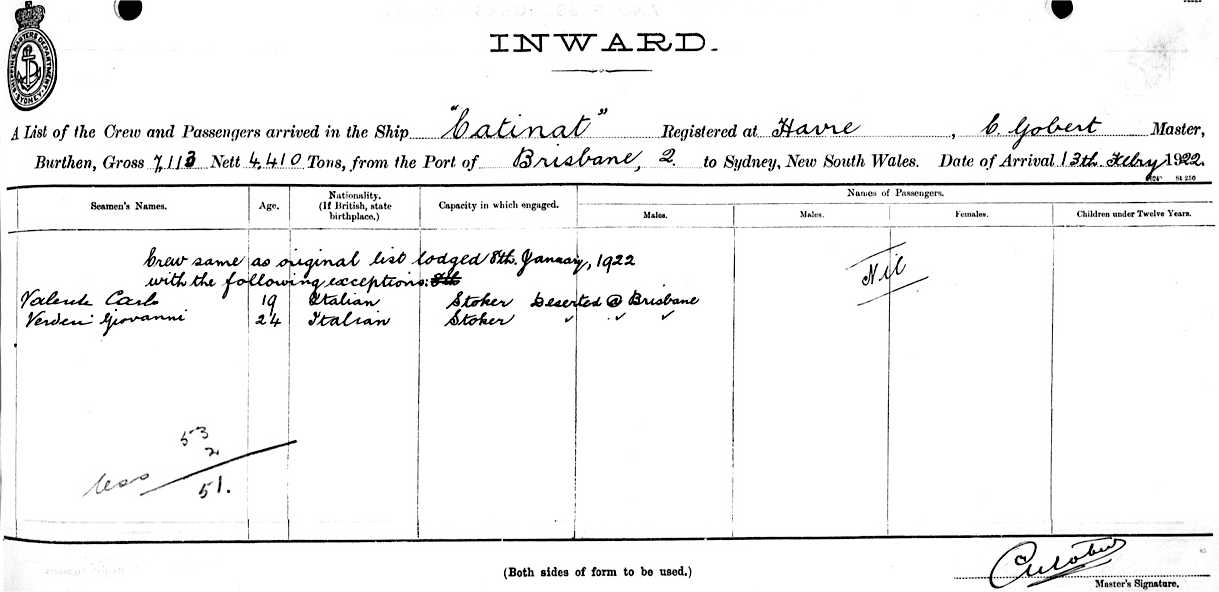 SHIPPING MASTERS DEPARTMENT SYDNEY
INWARD.
A List of the Crew and Passengers arrived in the Ship "Catinat" Registered at Havre, C. Gobert Master,
Burthen, Gross 7,113 Nett 4,410 Tons, from the Port of Brisbane, 2. to Sydney, New South Wales. Date of Arrival 13th Febry 1922.
Seamen's Names. Age. Nationality. (If British, state birthplace.) Capacity in which engaged. Names of Passengers.
Males. Males. Females. Children under Twelve Years.
Crew same as original list lodged 8th. January, 1922
with the following exceptions:
Nil
Valente Carlo 19 Italian Stoker Deserted @ Brisbane
Verderi Giovanni 24 Italian Stoker ✓ ✓ ✓
53
less 2
51.
(Both sides of form to be used.)
Master's Signature.